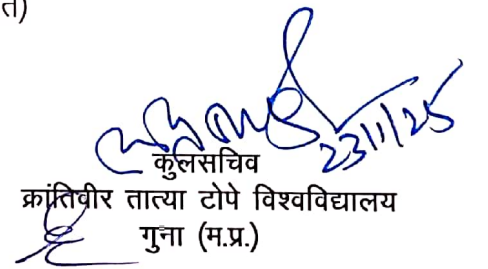 त)
23/1/25
कुलसचिव
क्रांतिवीर तात्या टोपे विश्वविद्यालय
गुना (म.प्र.)